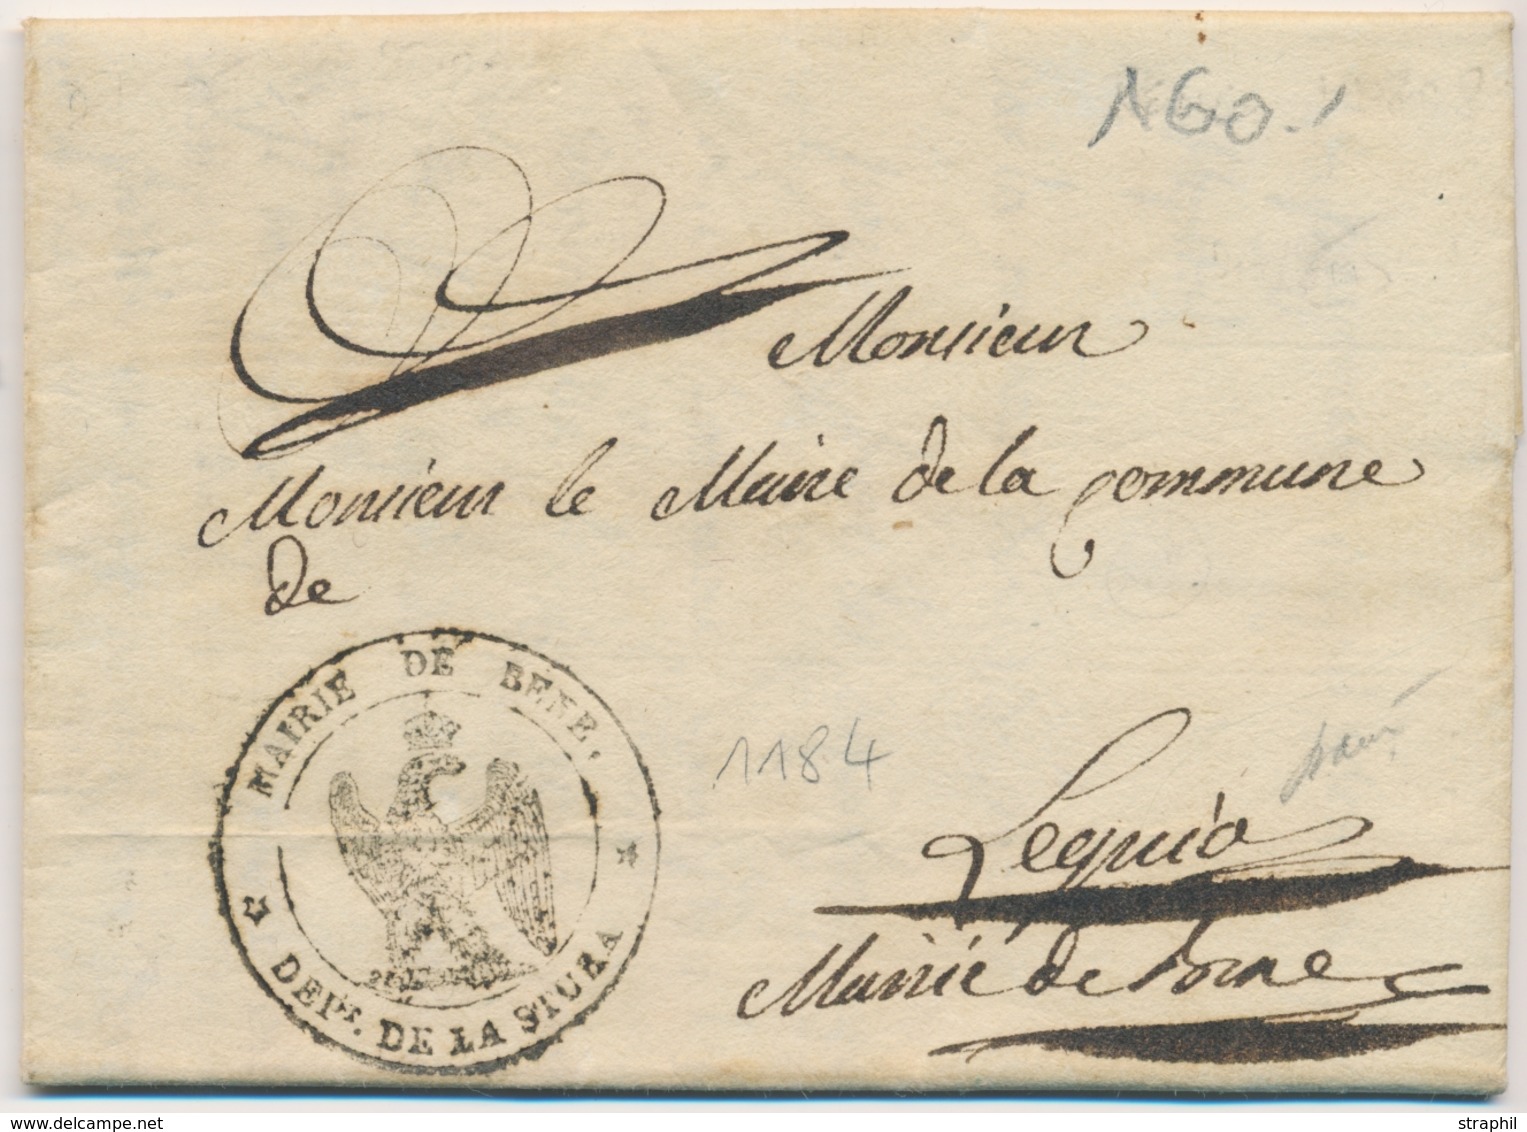 160.-
Monsieur
Monsieur le Maire de la Commune
de
MAIRIE DE BENE.
DEPt. DE LA STURA
1184
Lequio
Mairie de Bene
www.delcampe.net
straphil